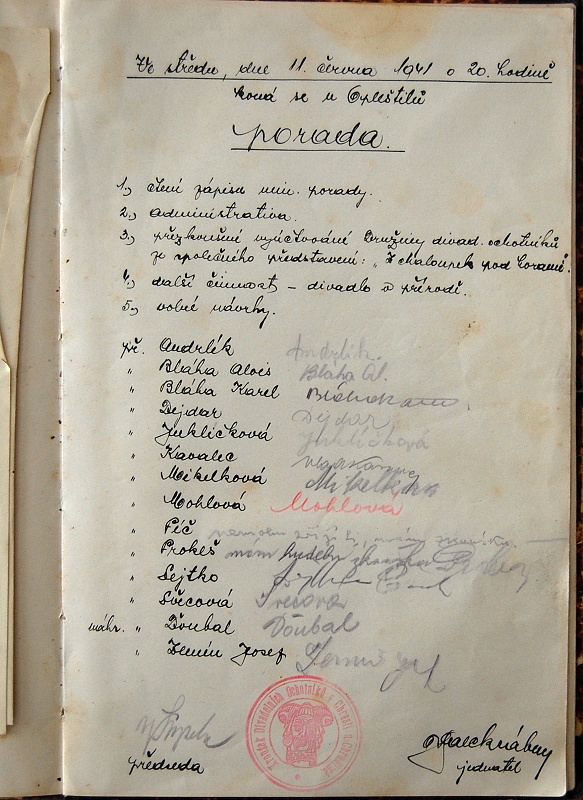 Ve středu, dne 11. června 1941 o 20. hodině
koná se u Opleštilů
porada.
1., čtení zápisu min. porady.
2., administrativa.
3., přezkoušení vyúčtování Družiny divad. ochotníků
ze společného představení: „Z chaloupek pod horami".
4., další činnost – divadlo v přírodě.
5., volné návrhy.
př. Andrlék Andrlík.
" Bláha Alois Bláha Al.
" Bláha Karel
" Dejdar Dejdar
" Juklíčková Juklíčková
" Kavalec
" Mikelková Mikelková
" Mohlová Mohlová
" Píč
" Prokeš mám hudební zkoušku Prokeš
" Sejtko
" Švecová Švecová
náhr. " Doubal Doubal
" Zemin Josef
předseda
jednatel